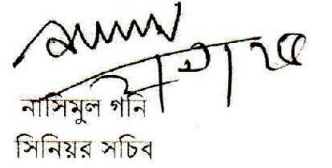 নাসিমুল গনি
সিনিয়র সচিব